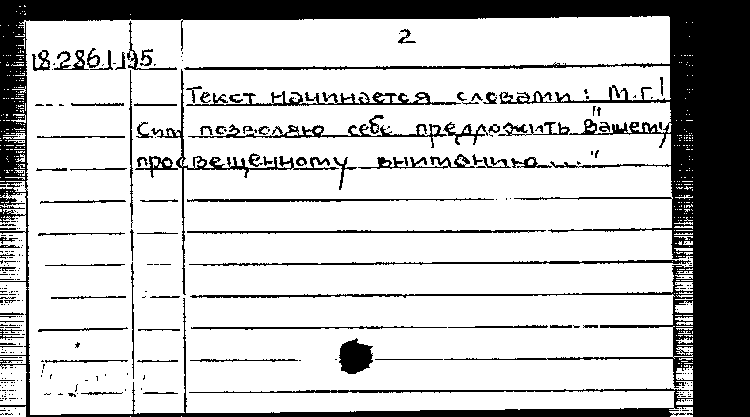 2
18.286.1.195
Текст начинается словами: М.г.!
Сим позволяю себе предложить "Вашему
просвещенному вниманию..."